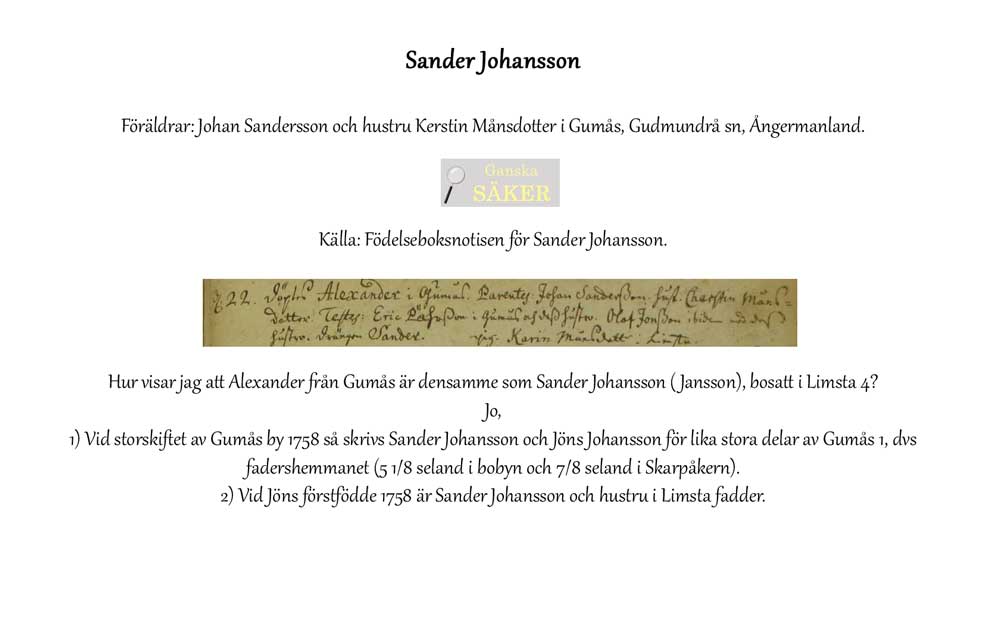 Sander Johansson
Föräldrar: Johan Sandersson och hustru Kerstin Månsdotter i Gumås, Gudmundrå sn, Ångermanland.
Ganska
SÄKER
Källa: Födelseboksnotisen för Sander Johansson.
22. döptes Alexander i Gumås. Parentes: Johan Sanderßon. hust. Cherstin Måns=
dotter. Testes: Eric i Gumås och deß hustru. Olof Jonßon ibidem och deß
hustru. drängen Sander. pig. Karin Månsdott. i Limsta.
Hur visar jag att Alexander från Gumås är densamme som Sander Johansson ( Jansson), bosatt i Limsta 4?
Jo,
1) Vid storskiftet av Gumås by 1758 så skrivs Sander Johansson och Jöns Johansson för lika stora delar av Gumås 1, dvs
fadershemmanet (5 1/8 seland i bobyn och 7/8 seland i Skarpåkern).
2) Vid Jöns förstfödde 1758 är Sander Johansson och hustru i Limsta fadder.